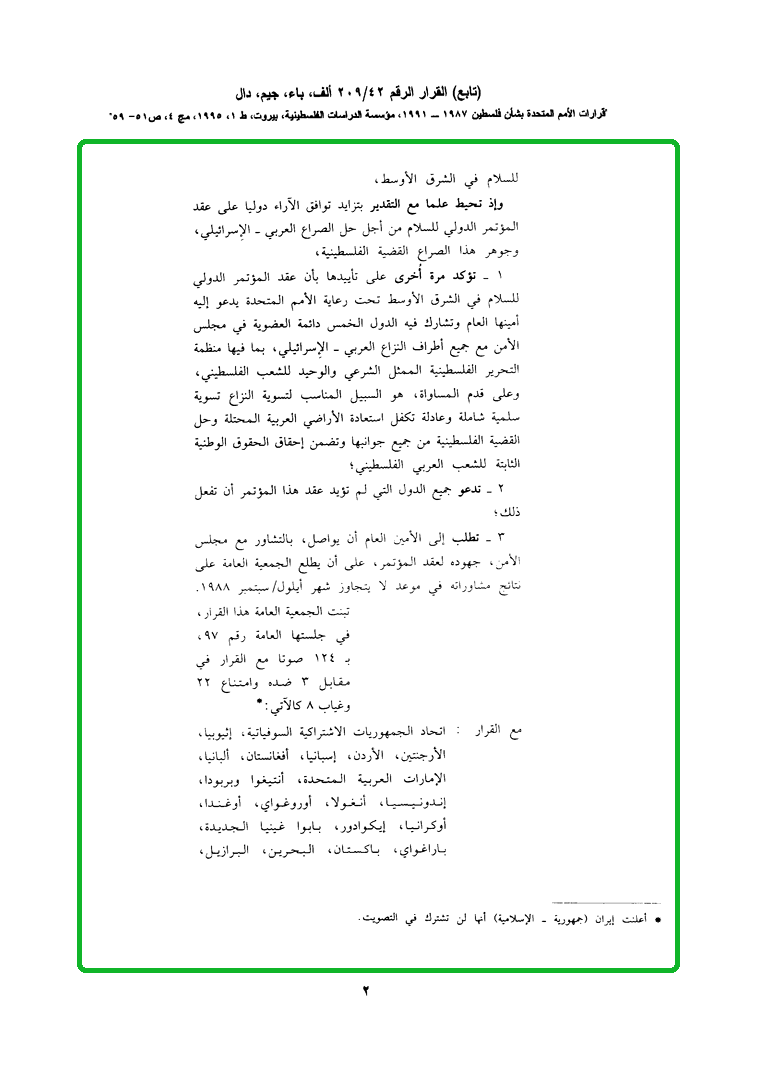 (تابع) القرار الرقم ٢٠٩/٤٢ ألف، باء، جيم، دال
"قرارات الأمم المتحدة بشأن فلسطين ١٩٨٧ ــ ١٩٩١، مؤسسة الدراسات الفلسطينية، بيروت، ط ١، ١٩٩٥، مج ٤، ص٥١- ٥٩"
للسلام في الشرق الأوسط،
وإذ تحيط علما مع التقدير بتزايد توافق الآراء دوليا على عقد
المؤتمر الدولي للسلام من أجل حل الصراع العربي ـ الإسرائيلي،
وجوهر هذا الصراع القضية الفلسطينية،
١ ـ تؤكد مرة أخرى على تأييدها بأن عقد المؤتمر الدولي
للسلام في الشرق الأوسط تحت رعاية الأمم المتحدة يدعو إليه
أمينها العام وتشارك فيه الدول الخمس دائمة العضوية في مجلس
الأمن مع جميع أطراف النزاع العربي ـ الإسرائيلي، بما فيها منظمة
التحرير الفلسطينية الممثل الشرعي والوحيد للشعب الفلسطيني،
وعلى قدم المساواة، هو السبيل المناسب لتسوية النزاع تسوية
سلمية شاملة وعادلة تكفل استعادة الأراضي العربية المحتلة وحل
القضية الفلسطينية من جميع جوانبها وتضمن إحقاق الحقوق الوطنية
الثابتة للشعب العربي الفلسطيني؛
٢ ـ تدعو جميع الدول التي لم تؤيد عقد هذا المؤتمر أن تفعل
ذلك؛
٣ ـ تطلب إلى الأمين العام أن يواصل، بالتشاور مع مجلس
الأمن، جهوده لعقد المؤتمر، على أن يطلع الجمعية العامة على
نتائج مشاوراته في موعد لا يتجاوز شهر أيلول/سبتمبر ١٩٨٨.
تبنت الجمعية العامة هذا القرار،
في جلستها العامة رقم ٩٧،
بـ ١٢٤ صوتا مع القرار في
مقابل ٣ ضده وامتناع ٢٢
وغياب ٨ كالآتي:*
مع القرار : اتحاد الجمهوريات الاشتراكية السوفياتية، إثيوبيا،
الأرجنتين، الأردن، إسبانيا، أفغانستان، ألبانيا،
الإمارات العربية المتحدة، أنتيغوا وبربودا،
إندونيسيا، أنغولا، أوروغواي، أوغندا،
أوكرانيا، إيكوادور، بابوا غينيا الجديدة،
باراغواي، باكستان، البحرين، البرازيل،
• أعلنت إيران (جمهورية ـ الإسلامية) أنها لن تشترك في التصويت.
٢